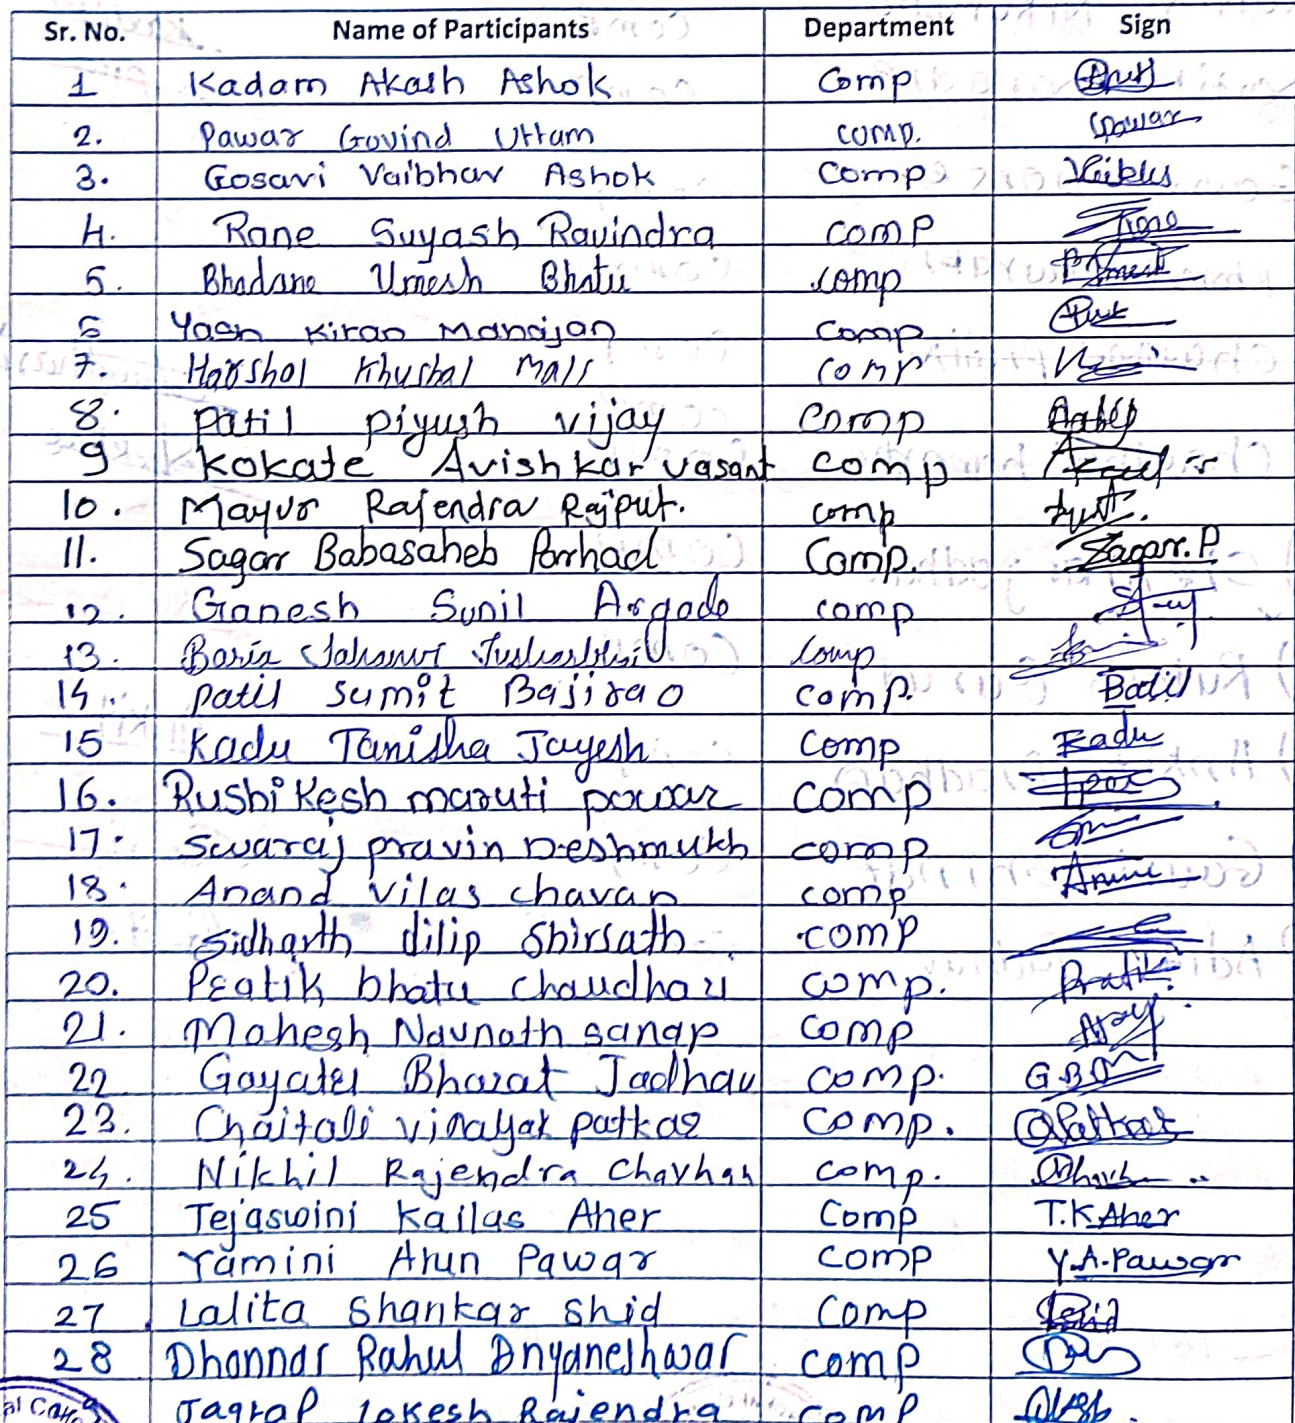 Sr. No. Name of Participants Department Sign
1 Kadam Akash Ashok Comp
2. Pawar Govind Uttam comp. Gpawar
3. Gosavi Vaibhav Ashok Comp
4. Rane Suyash Ravindra comp Rane
5. Bhadane Umesh Bhatu comp
6 Yash Kiran Mahajan comp
7. Harshal Khushal Mali comp
8. Patil piyush vijay comp
9 Kokate Avishkar vasant comp
10. Mayur Rajendra Rajput. comp
11. Sagar Babasaheb Comp. Sagar.P
12. Ganesh Sunil Argade comp
13. Baria comp
14 patil sumit Bajirao comp.
15 Kadu Tanisha Jayesh Comp Kadu
16. Rushikesh maruti pawar comp
17. Swaraj pravin Deshmukh comp
18. Anand vilas chavan comp
19. Sidharth dilip Shirsath comp
20. Pratik bhatu chaudhari comp. Pratik
21. Mahesh Navnath sanap comp
22 Gayatri Bharat Jadhav comp.
23. Chaitali vinayak patkar comp.
24. Nikhil Rajendra Chavhan comp.
25 Tejaswini Kailas Aher Comp T.K.Aher
26 Yamini Arun Pawar comp Y.A.Pawar
27 Lalita Shankar Shid Comp
28 Dhannar Rahul Dnyaneshwar comp
Jagtap Lokesh Rajendra comp